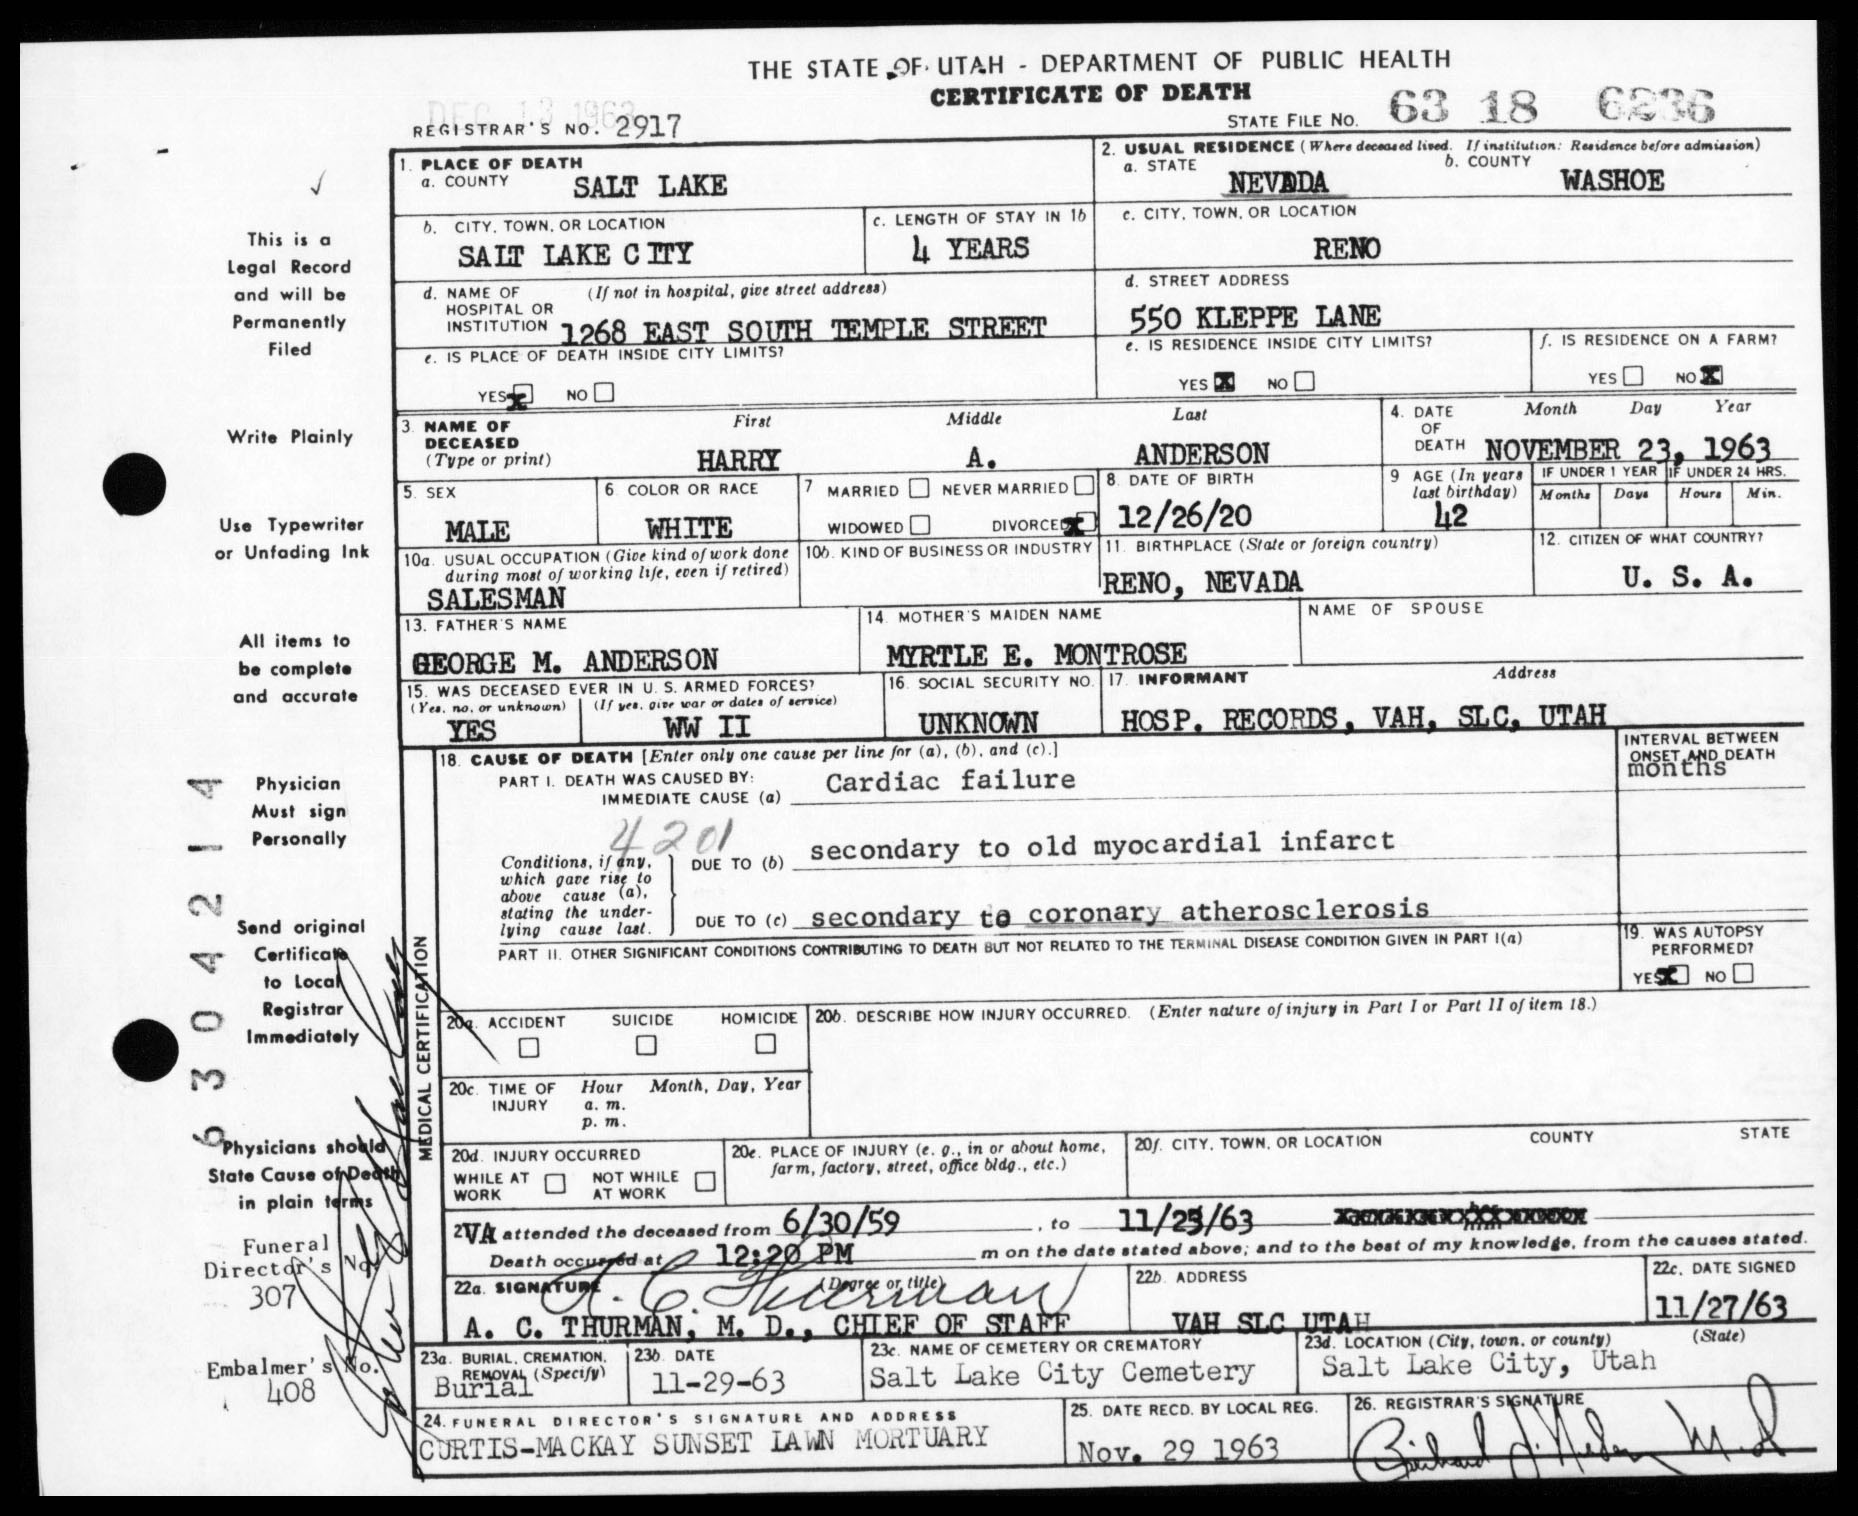 THE STATE OF UTAH - DEPARTMENT OF PUBLIC HEALTH
CERTIFICATE OF DEATH
DEC 13 1963
REGISTRAR'S NO. 2917
STATE FILE NO. 63 18 6236
1. PLACE OF DEATH
a. COUNTY SALT LAKE
2. USUAL RESIDENCE (Where deceased lived. If institution: Residence before admission)
a. STATE NEVADA b. COUNTY WASHOE
b. CITY, TOWN, OR LOCATION SALT LAKE CITY
c. LENGTH OF STAY IN 1b 4 YEARS
c. CITY, TOWN, OR LOCATION RENO
d. NAME OF HOSPITAL OR INSTITUTION (If not in hospital, give street address) 1268 EAST SOUTH TEMPLE STREET
d. STREET ADDRESS 550 KLEPPE LANE
e. IS PLACE OF DEATH INSIDE CITY LIMITS? YES X NO
e. IS RESIDENCE INSIDE CITY LIMITS? YES X NO
f. IS RESIDENCE ON A FARM? YES NO X
3. NAME OF DECEASED (Type or print)
First Middle Last
HARRY A. ANDERSON
4. DATE OF DEATH Month Day Year
NOVEMBER 23, 1963
5. SEX MALE
6. COLOR OR RACE WHITE
7 MARRIED NEVER MARRIED
WIDOWED DIVORCED X
8. DATE OF BIRTH 12/26/20
9 AGE (In years last birthday) 42
IF UNDER 1 YEAR Months Days
IF UNDER 24 HRS. Hours Min.
10a. USUAL OCCUPATION (Give kind of work done during most of working life, even if retired) SALESMAN
10b. KIND OF BUSINESS OR INDUSTRY
11. BIRTHPLACE (State or foreign country) RENO, NEVADA
12. CITIZEN OF WHAT COUNTRY? U. S. A.
13. FATHER'S NAME GEORGE M. ANDERSON
14. MOTHER'S MAIDEN NAME MYRTLE E. MONTROSE
NAME OF SPOUSE
15. WAS DECEASED EVER IN U. S. ARMED FORCES?
(Yes, no, or unknown) YES
(If yes, give war or dates of service) WW II
16. SOCIAL SECURITY NO. UNKNOWN
17. INFORMANT Address
HOSP. RECORDS, VAH, SLC, UTAH
MEDICAL CERTIFICATION
18. CAUSE OF DEATH [Enter only one cause per line for (a), (b), and (c).]
PART I. DEATH WAS CAUSED BY:
IMMEDIATE CAUSE (a) Cardiac failure
INTERVAL BETWEEN ONSET AND DEATH
months
4201
Conditions, if any, which gave rise to above cause (a), stating the underlying cause last.
DUE TO (b) secondary to old myocardial infarct
DUE TO (c) secondary to coronary atherosclerosis
PART II. OTHER SIGNIFICANT CONDITIONS CONTRIBUTING TO DEATH BUT NOT RELATED TO THE TERMINAL DISEASE CONDITION GIVEN IN PART I(a)
19. WAS AUTOPSY PERFORMED?
YES X NO
20a. ACCIDENT SUICIDE HOMICIDE
20b. DESCRIBE HOW INJURY OCCURRED. (Enter nature of injury in Part I or Part II of item 18.)
20c. TIME OF INJURY Hour a. m. p. m. Month, Day, Year
20d. INJURY OCCURRED
WHILE AT WORK NOT WHILE AT WORK
20e. PLACE OF INJURY (e. g., in or about home, farm, factory, street, office bldg., etc.)
20f. CITY, TOWN, OR LOCATION COUNTY STATE
2 VA attended the deceased from 6/30/59, to 11/23/63
Death occurred at 12:20 PM m on the date stated above; and to the best of my knowledge, from the causes stated.
22a. SIGNATURE (Degree or title)
A. C. Thurman
A. C. THURMAN, M. D., CHIEF OF STAFF
22b. ADDRESS VAH SLC UTAH
22c. DATE SIGNED 11/27/63
23a. BURIAL, CREMATION, REMOVAL (Specify) Burial
23b. DATE 11-29-63
23c. NAME OF CEMETERY OR CREMATORY Salt Lake City Cemetery
23d. LOCATION (City, town, or county) (State)
Salt Lake City, Utah
24. FUNERAL DIRECTOR'S SIGNATURE AND ADDRESS
CURTIS-MACKAY SUNSET LAWN MORTUARY
25. DATE RECD. BY LOCAL REG. Nov. 29 1963
26. REGISTRAR'S SIGNATURE
This is a
Legal Record
and will be
Permanently
Filed
Write Plainly
Use Typewriter
or Unfading Ink
All items to
be complete
and accurate
Physician
Must sign
Personally
Send original
Certificate
to Local
Registrar
Immediately
Physicians should
State Cause of Death
in plain terms
Funeral
Director's No.
307
Embalmer's No.
408
6304214